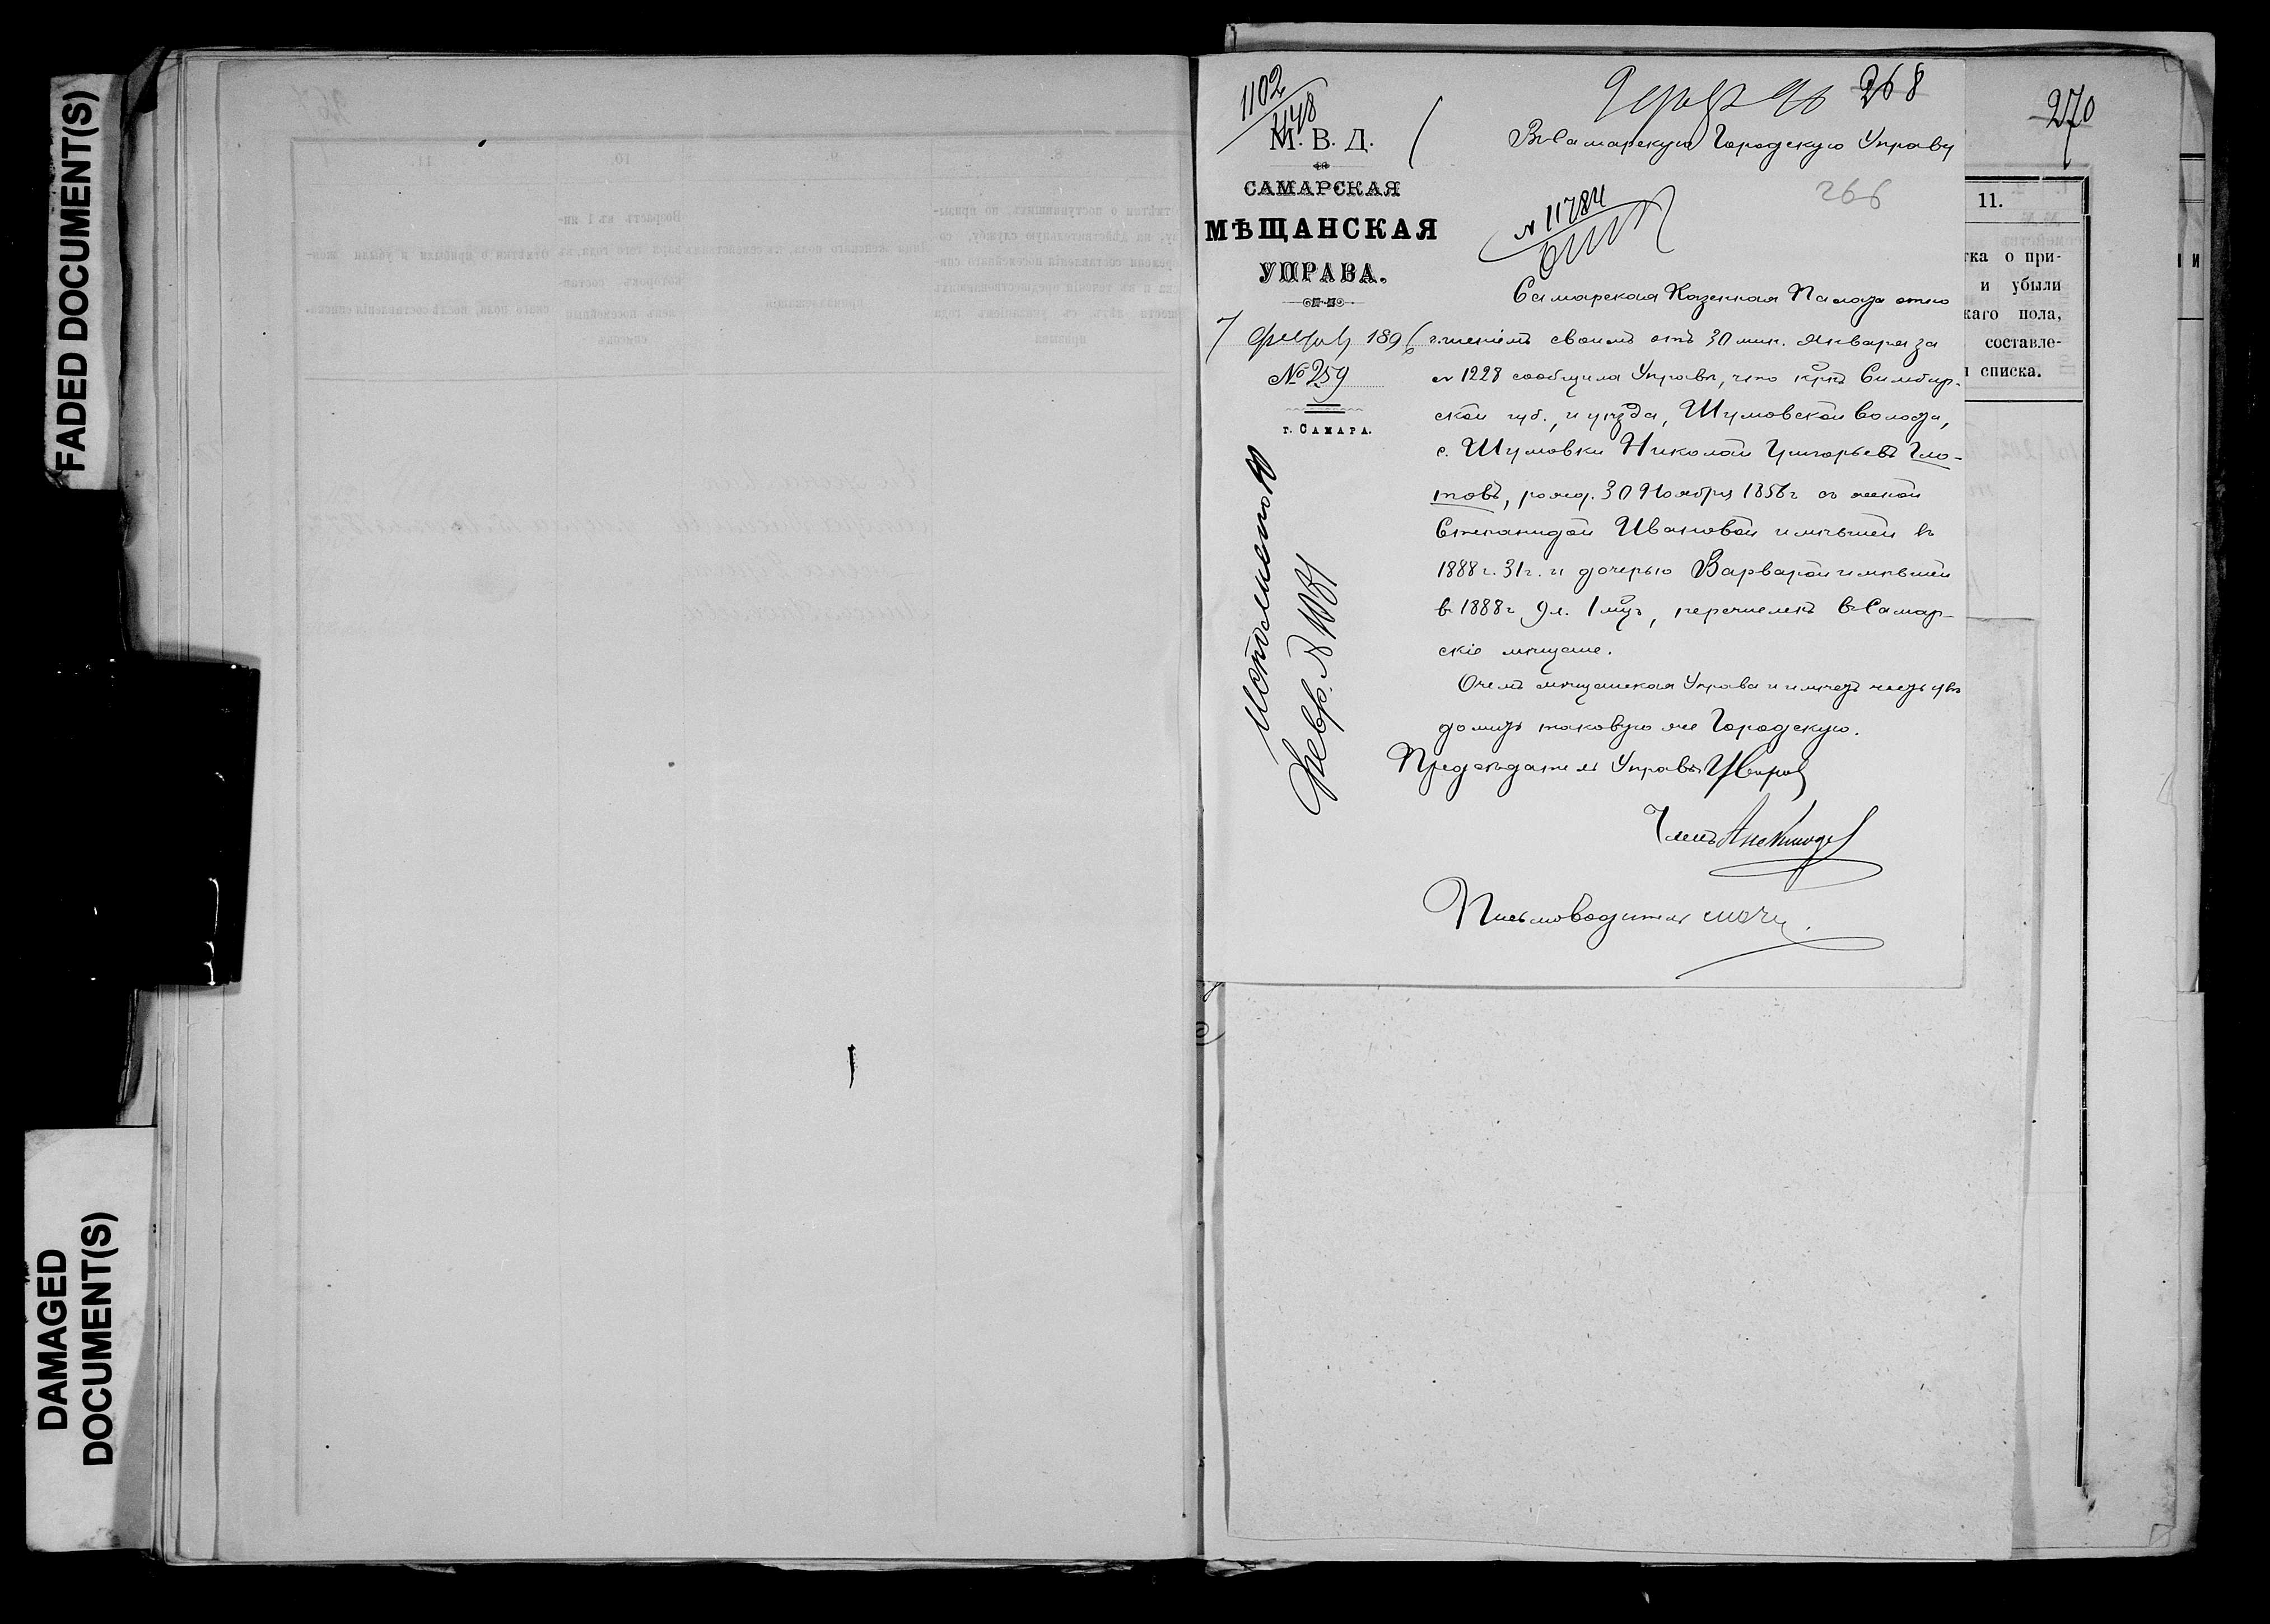 FADED DOCUMENT(S)
DAMAGED
DOCUMENT(S)
1102
448
268
270
М. В. Д.
САМАРСКАЯ
МѢЩАНСКАЯ
УПРАВА.
7 Февр. 1896
№ 259
г. САМАРА.
Исполнено
Февр. № 1081
Въ Самарскую Городскую Управу
266
№ 11784
Самарская Казенная Палата отно
шеніемъ своимъ отъ 30 мин. Января за
№ 1228 сообщила Управѣ, что кр-нъ Симбир-
ской губ., и уѣзда, Шумовской волости,
с. Шумовки Николай Григорьевъ Гло-
товъ, рожд. 30 Ноября 1856 г. съ женой
Степанидой Ивановой имѣвшей въ
1888 г. 31 г. и дочерью Варварой имѣвшей
въ 1888 г. 9 л. 1 мц., перечисленъ въ Самар-
скіе мѣщане.
О чемъ мѣщанская Управа и имѣетъ честь увѣ
домить таковую же Городскую.
Предсѣдатель Управы
Членъ
Письмоводитель
11.
тка о при-
и убыли
каго пола,
составле-
и списка.